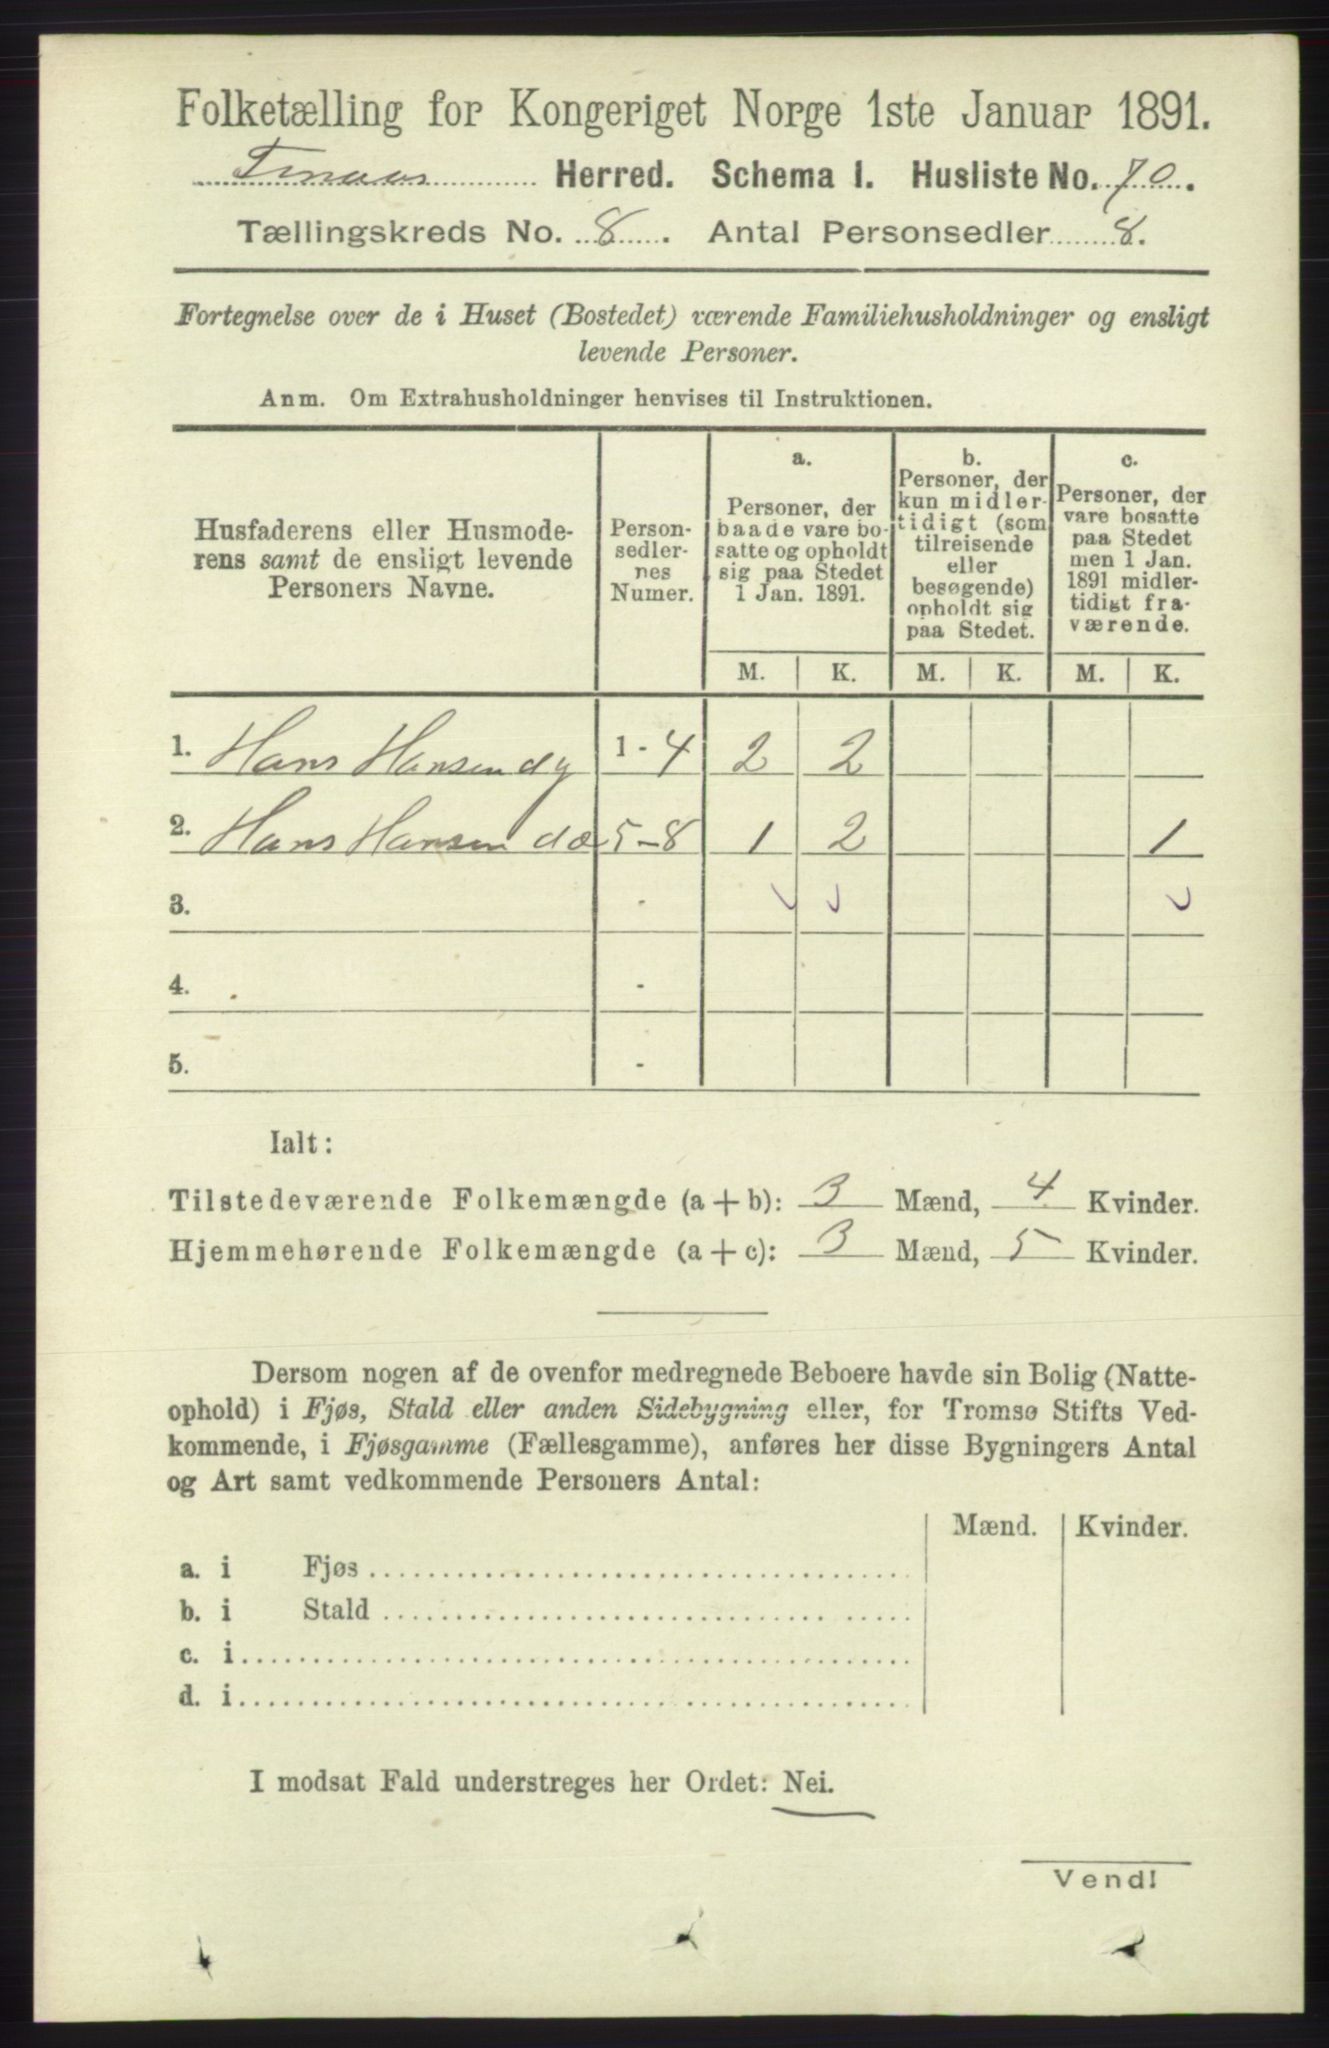 Folketælling for Kongeriget Norge 1ste Januar 1891.
Finaas Herred. Schema I. Husliste No. 70.
Tællingskreds No. 8. Antal Personsedler 8.
Fortegnelse over de i Huset (Bostedet) værende Familiehusholdninger og ensligt
levende Personer.
Anm. Om Extrahusholdninger henvises til Instruktionen.
Husfaderens eller Husmode-
rens samt de ensligt levende
Personers Navne.
Person-
sedler-
nes
Numer.
a.
Personer, der
baade vare bo-
satte og opholdt
sig paa Stedet
1 Jan. 1891.
b.
Personer, der
kun midler-
tidigt (som
tilreisende
eller
besøgende)
opholdt sig
paa Stedet.
c.
Personer, der
vare bosatte
paa Stedet
men 1 Jan.
1891 midler-
tidigt fra-
værende.
M. K. M. K. M. K.
1. Hans Hansen dy 1 - 4 2 2
2. Hans Hansen dæ 5-8 1 2 1
3. -
4. -
5. -
Ialt:
Tilstedeværende Folkemængde (a + b): 3 Mænd, 4 Kvinder.
Hjemmehørende Folkemængde (a + c): 3 Mænd, 5 Kvinder.
Dersom nogen af de ovenfor medregnede Beboere havde sin Bolig (Natte-
ophold) i Fjøs, Stald eller anden Sidebygning eller, for Tromsø Stifts Ved-
kommende, i Fjøsgamme (Fællesgamme), anføres her disse Bygningers Antal
og Art samt vedkommende Personers Antal:
Mænd. Kvinder.
a. i Fjøs
b. i Stald
c. i
d. i
I modsat Fald understreges her Ordet: Nei.
Vend!